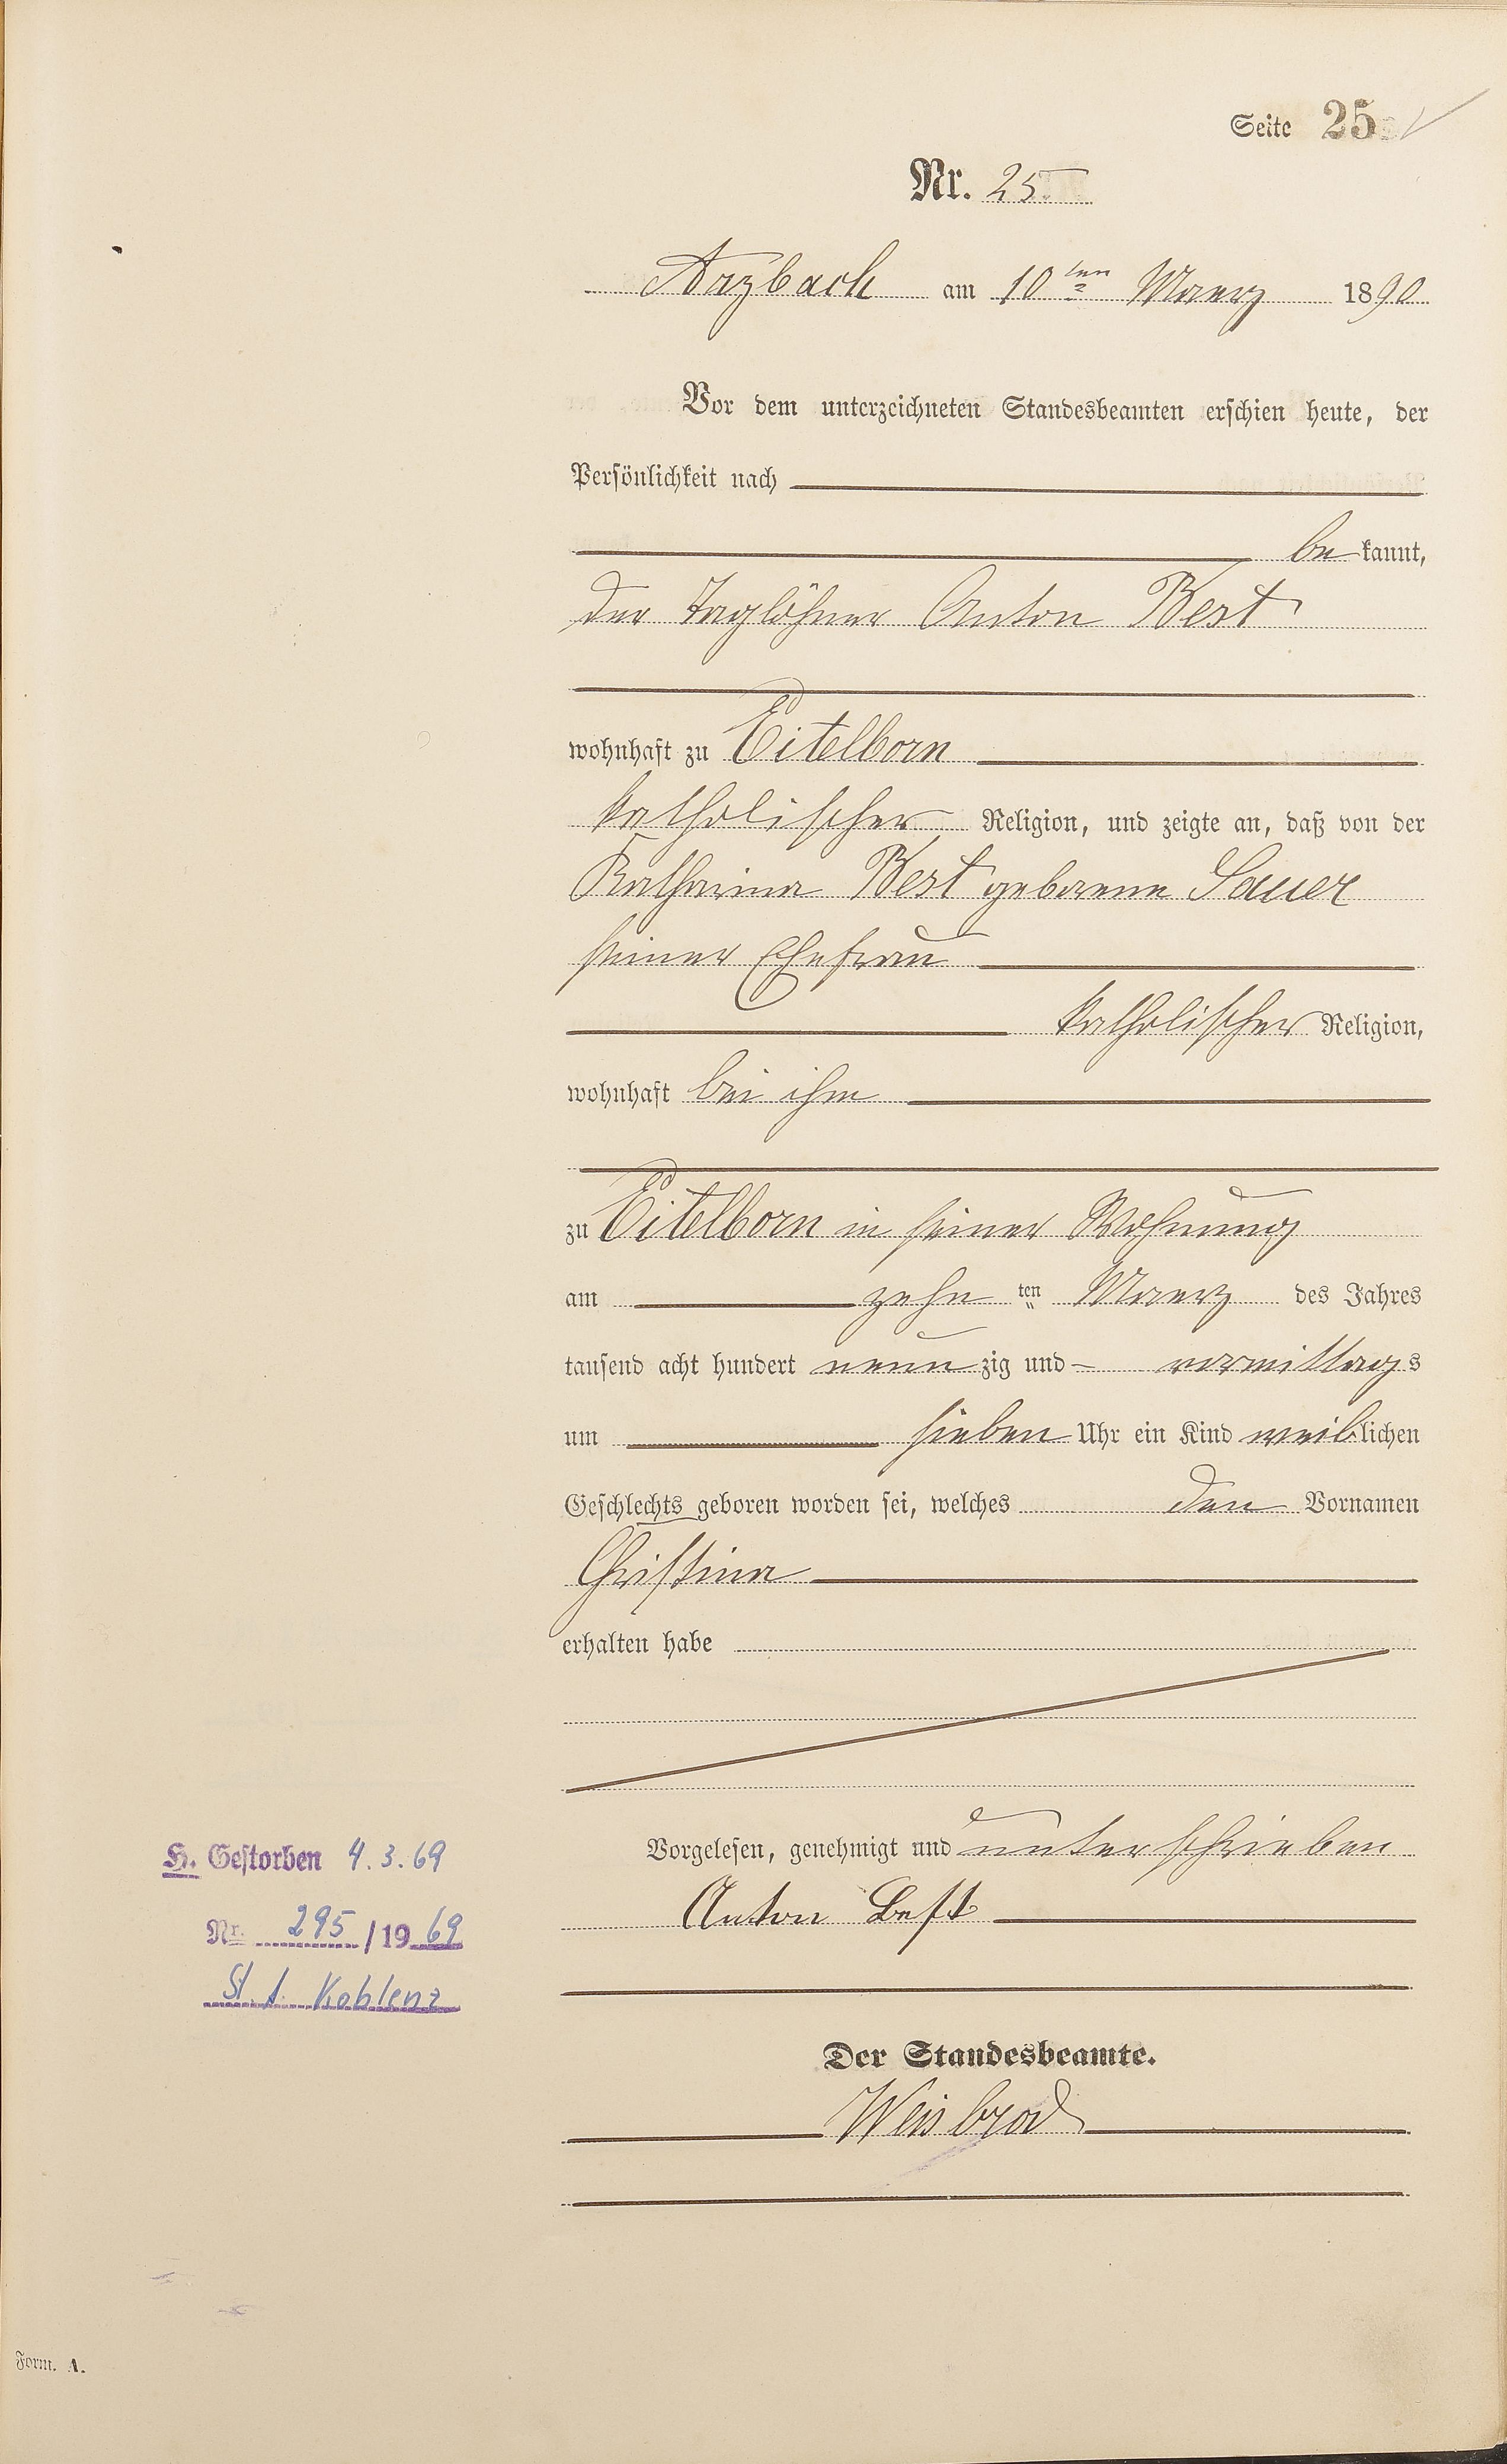 Seite 25
Nr. 25.
Arzbach am 10ten Maerz 1890
Vor dem unterzeichneten Standesbeamten erschien heute, der
Persönlichkeit nach
be kannt,
der Taglöhner Anton Best
wohnhaft zu Eitelborn
katholischer Religion, und zeigte an, daß von der
Katharina Best geborene Sauer
seiner Ehefrau
katholischer Religion,
wohnhaft bei ihm
zu Eitelborn in seiner Wohnung
am zehn ten Maerz des Jahres
tausend acht hundert neun zig und – vormittags
um sieben Uhr ein Kind weiblichen
Geschlechts geboren worden sei, welches den Vornamen
Christina
erhalten habe
Vorgelesen, genehmigt und unterschrieben
Anton Best
H. Gestorben 4.3.69
Nr. 295/1969
St. A. Koblenz
Der Standesbeamte.
Weisbrod
Form. A.